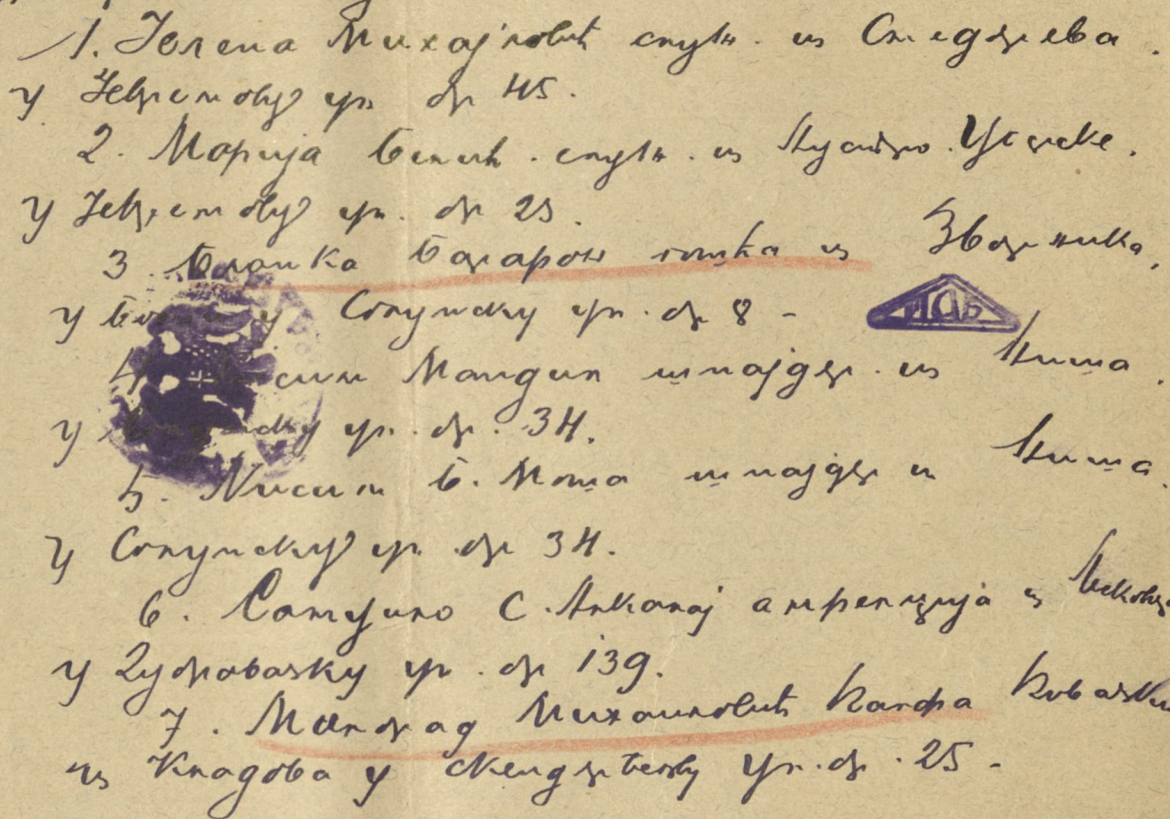 1. Јелена Михајловић служ. из Смедерева.
у Јевремову ул. бр 45.
2. Марија служ. из
у Јевремову ул. бр 23.
3. Бланка Баларон из Зворника,
у Солунску ул. бр 8 -
Мандил шнајдер. из Ниша.
у ул. бр. 34.
5. Нисим Б. Моша шнајдер из Ниша.
у Солунску ул. бр 34.
6. Самуило С. Алкалај из Лесковца
у Дубровачку ул. бр 139.
7. Милорад Михаиловић
из Кладова у Скендербегову ул. бр. 25.